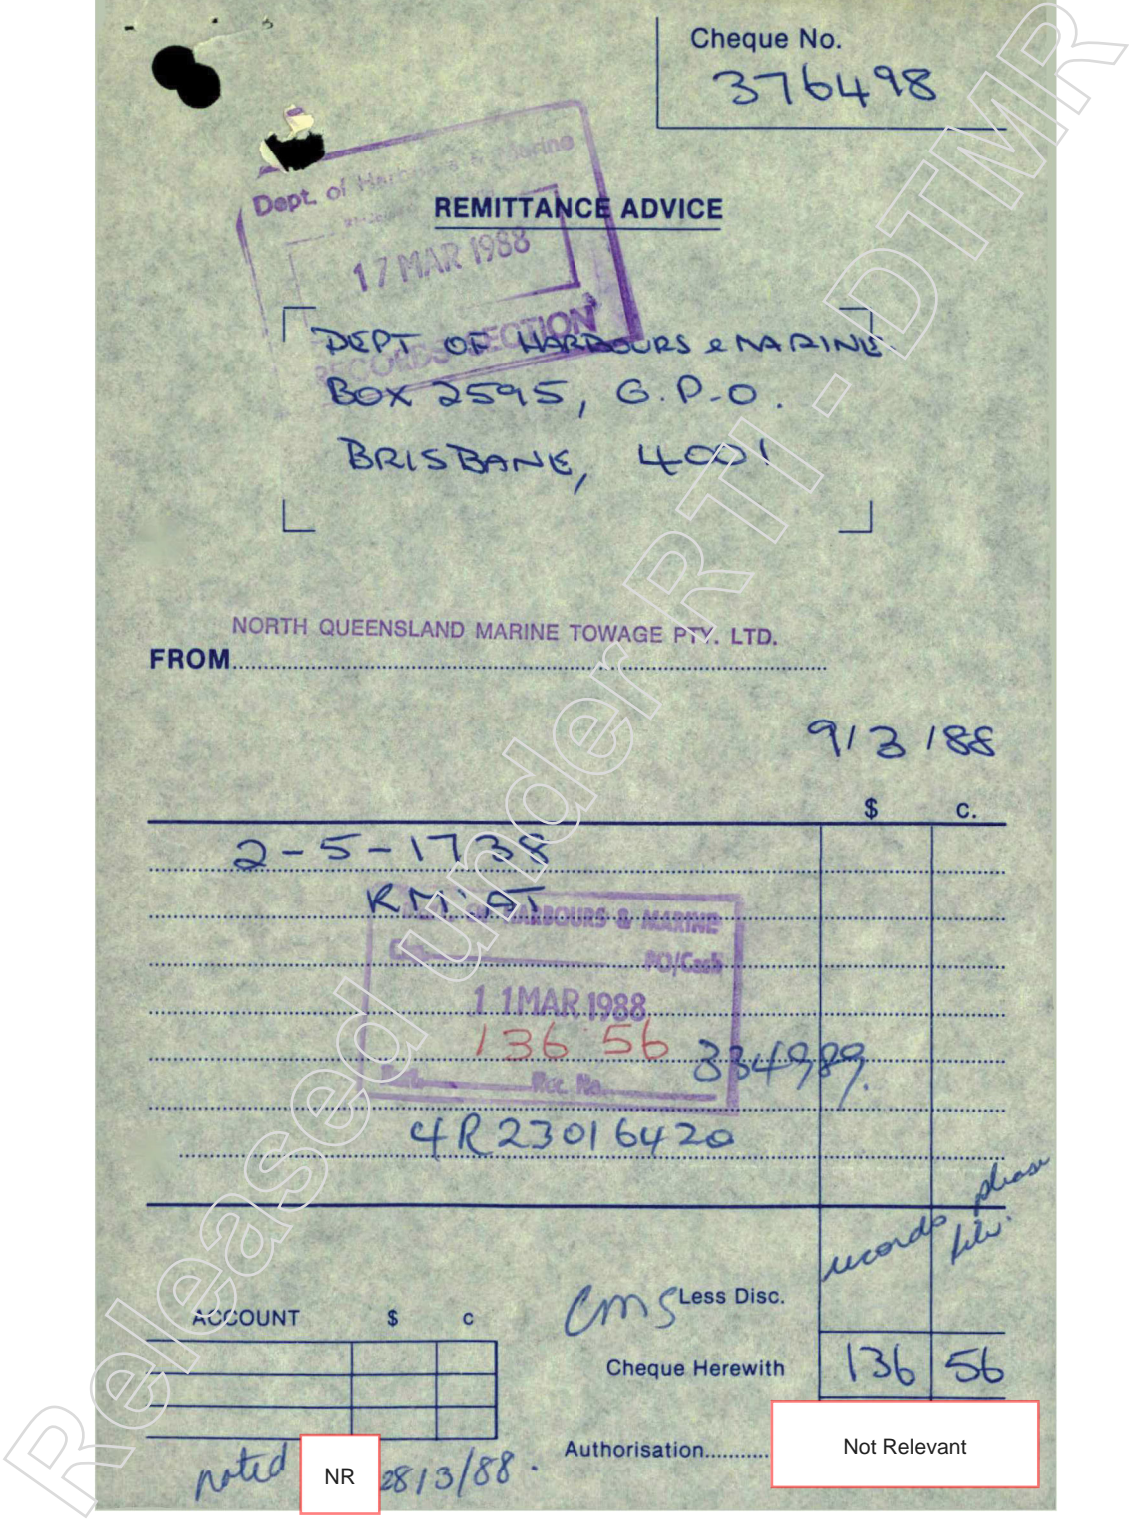 Cheque No.
376498
Dept. of Harbours & Marine
REMITTANCE ADVICE
17 MAR 1988
RECORDS SECTION
DEPT OF HARBOURS & MARINE
BOX 2595, G.P.O.
BRISBANE, 4001
NORTH QUEENSLAND MARINE TOWAGE PTY. LTD.
FROM
9/3/88
$ c.
2-5-1738
DEPT. OF HARBOURS & MARINE
PO/Cash
11 MAR 1988
136 56
334989.
Rec. No.
4R23016420
records please
file.
cms
Less Disc.
ACCOUNT $ c
Cheque Herewith 136 56
Authorisation...........
Not Relevant
noted NR 28/3/88.
Released under RTI - DTMR